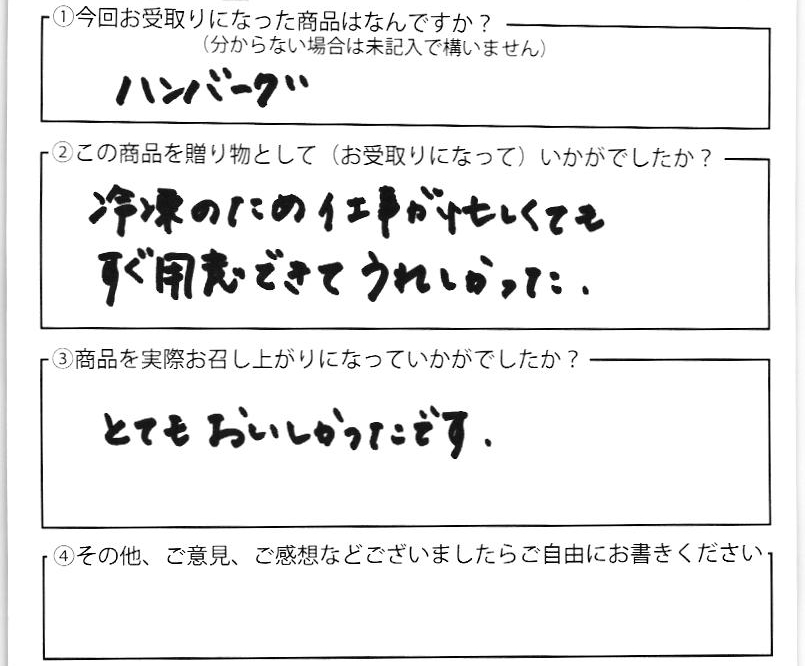 ①今回お受取りになった商品はなんですか？
（分からない場合は未記入で構いません）
ハンバーグ
②この商品を贈り物として（お受取りになって）いかがでしたか？
冷凍のため仕事が忙しくても
すぐ用意できてうれしかった．
③商品を実際お召し上がりになっていかがでしたか？
とてもおいしかったです．
④その他、ご意見、ご感想などございましたらご自由にお書きください